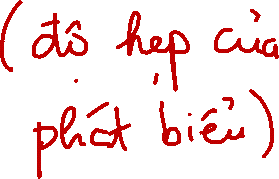 (độ hẹp của
phát biểu)